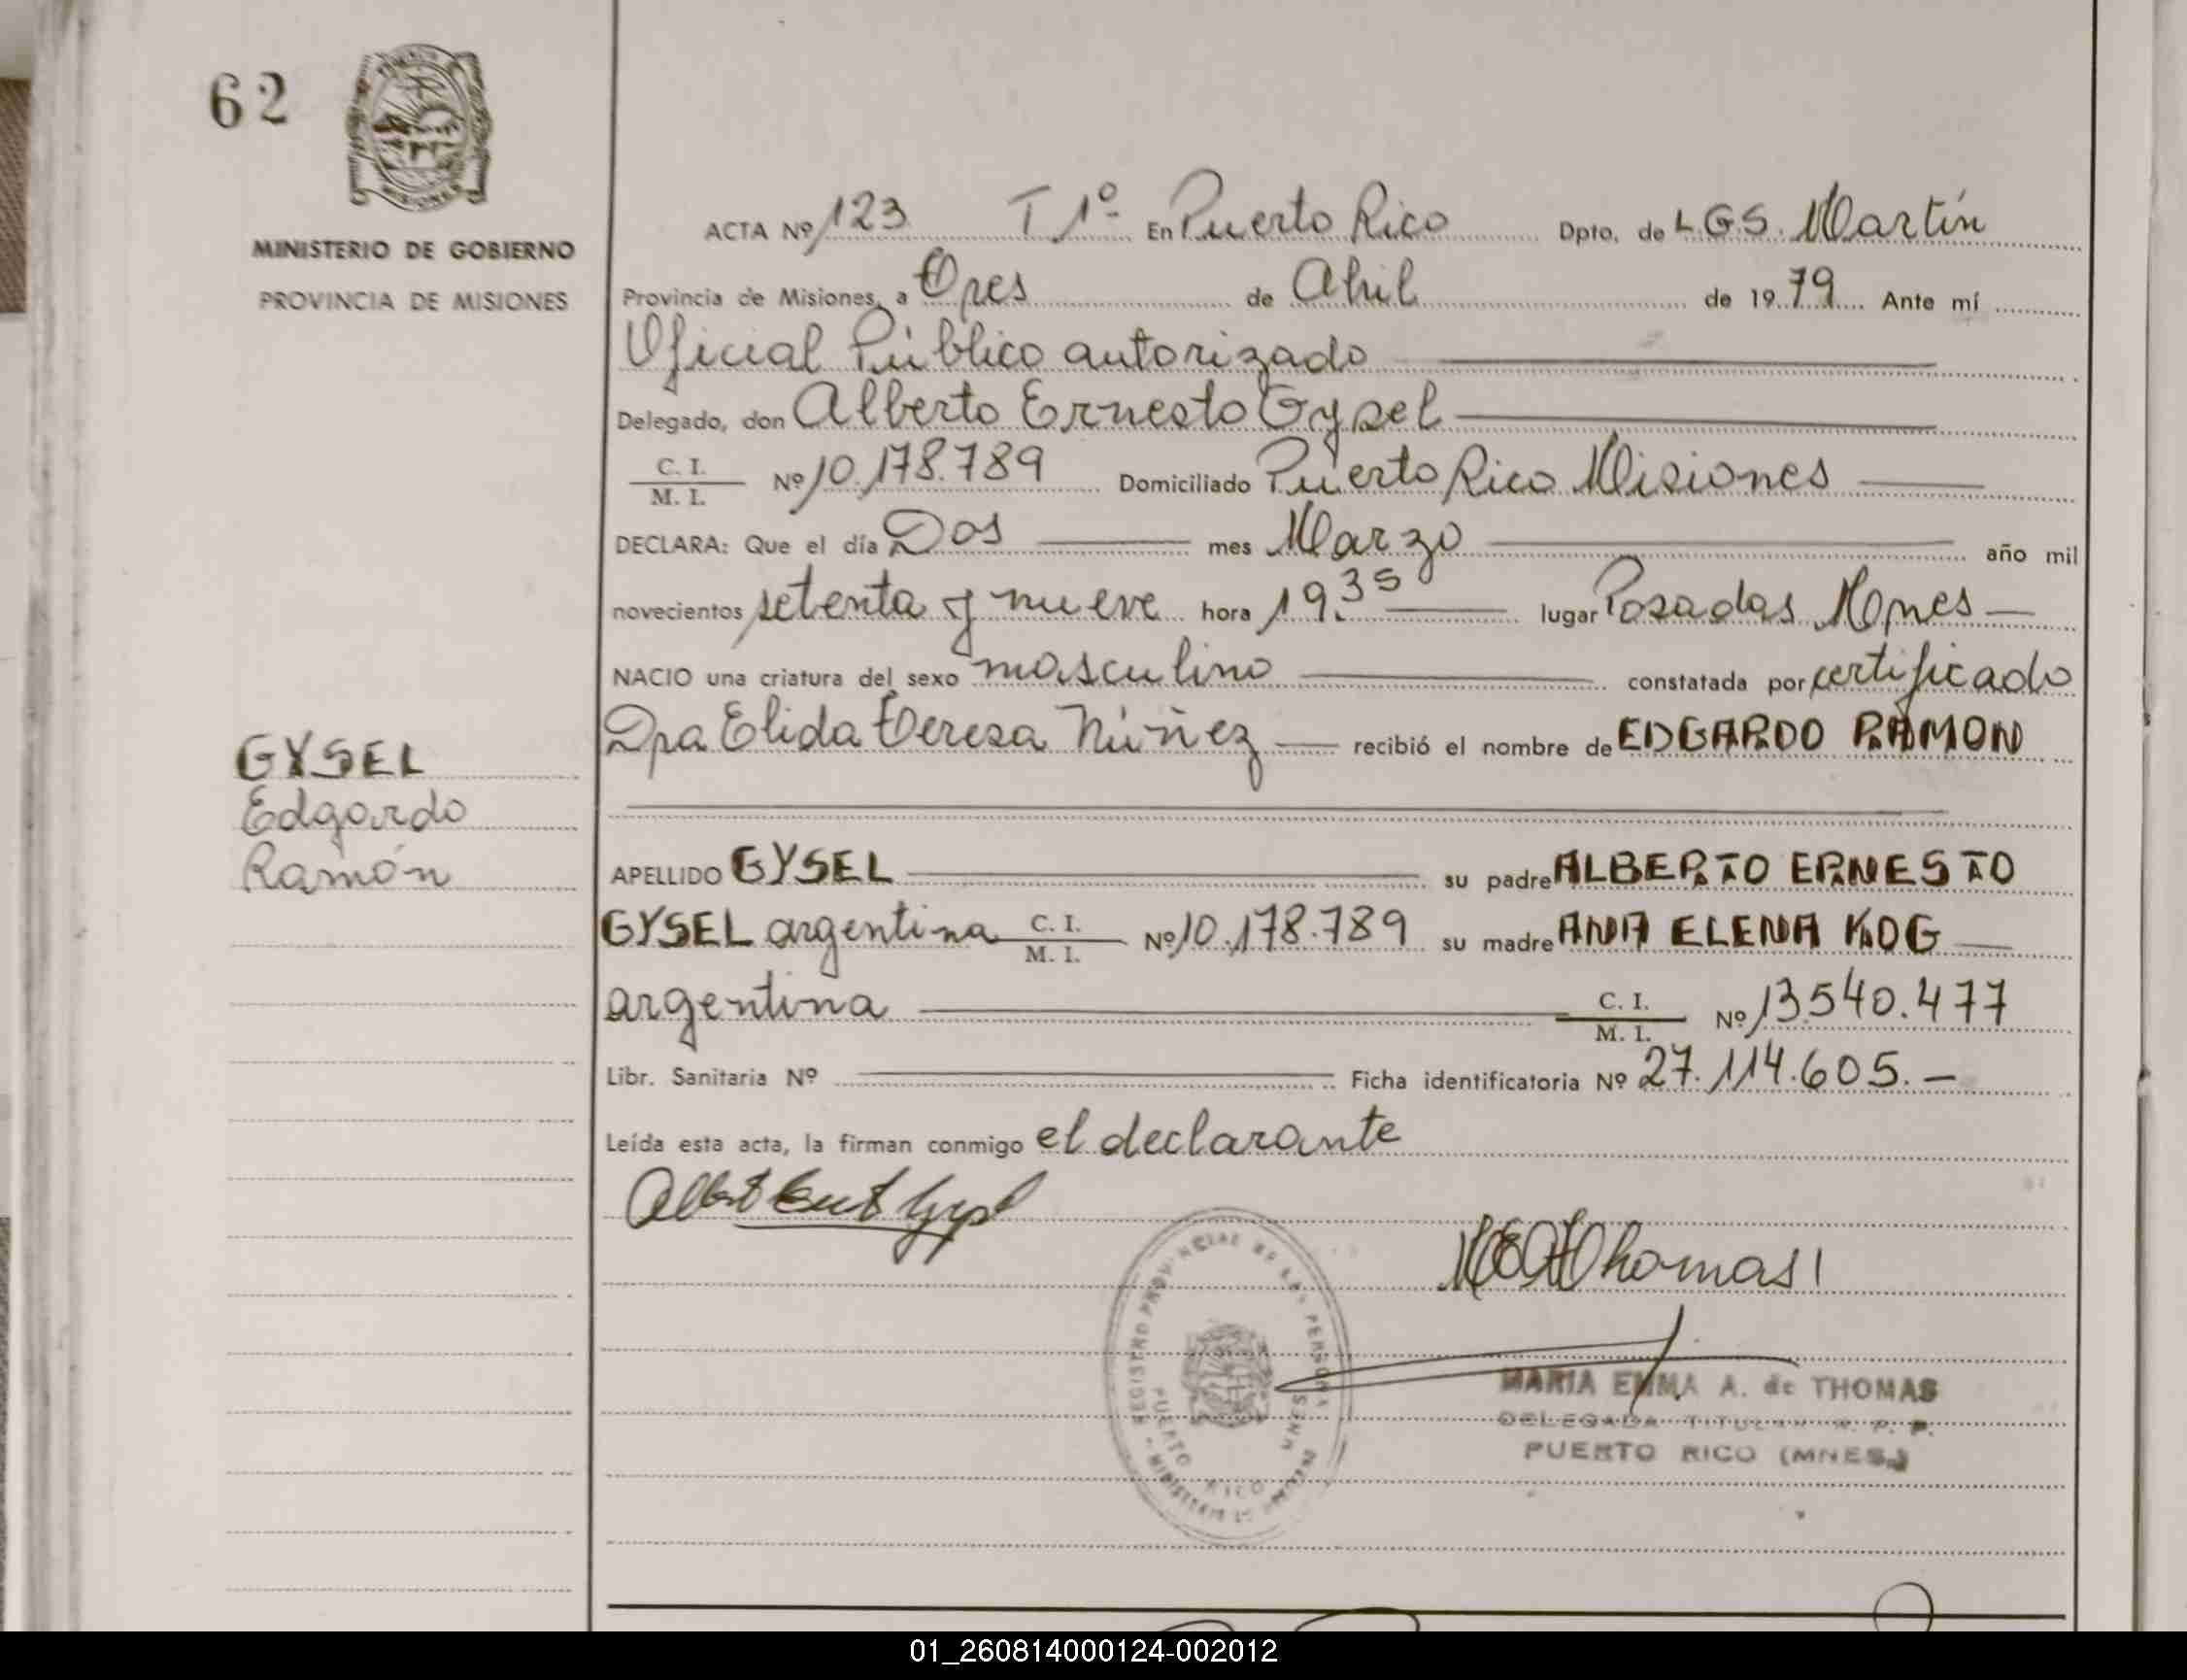 62
MISIONES
MINISTERIO DE GOBIERNO
PROVINCIA DE MISIONES
GYSEL
Edgardo
Ramón
ACTA Nº 123 T 1º En Puerto Rico Dpto. de L.G.S. Martín
Provincia de Misiones, a Tres de Abril de 1979 Ante mí
Oficial Público autorizado
Delegado, don Alberto Ernesto Gysel
C. I. / M. I. Nº 10.178.789 Domiciliado Puerto Rico Misiones
DECLARA: Que el día Dos mes Marzo año mil
novecientos setenta y nueve hora 19.35 lugar Posadas Mnes
NACIO una criatura del sexo masculino constatada por certificado
Dra Elida Teresa Núñez recibió el nombre de EDGARDO RAMON
APELLIDO GYSEL su padre ALBERTO ERNESTO
GYSEL argentina C. I. / M. I. Nº 10.178.789 su madre ANA ELENA KOG
argentina C. I. / M. I. Nº 13.540.477
Libr. Sanitaria Nº Ficha identificatoria Nº 27.114.605.-
Leída esta acta, la firman conmigo el declarante
MEAThomas
REGISTRO PROVINCIAL DE LAS PERSONAS
PUERTO RICO MNES
MARIA EMMA A. de THOMAS
DELEGADA TITULAR R. P. P.
PUERTO RICO (MNES.)
01_260814000124-002012